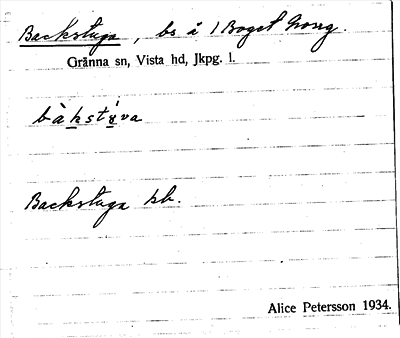 Backstuga, bs å 1 Boget Norrg.
Gränna sn, Vista hd, Jkpg. l.
bàkstúva
Backstuga kb.
Alice Petersson 1934.